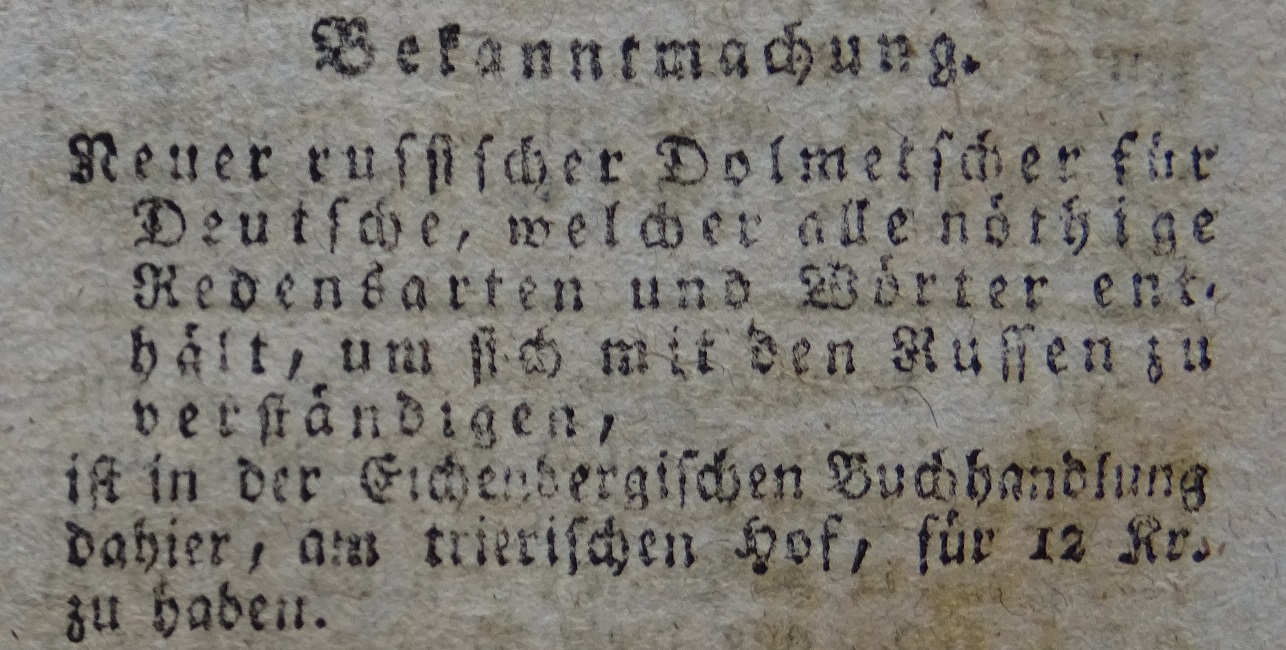 Bekanntmachung.
Neuer russischer Dolmetscher für
Deutsche, welcher alle nöthige
Redensarten und Wörter ent-
hält, um sich mit den Russen zu
verständigen,
ist in der Eichenbergischen Buchhandlung
dahier, am trierischen Hof, für 12 Kr.
zu haben.